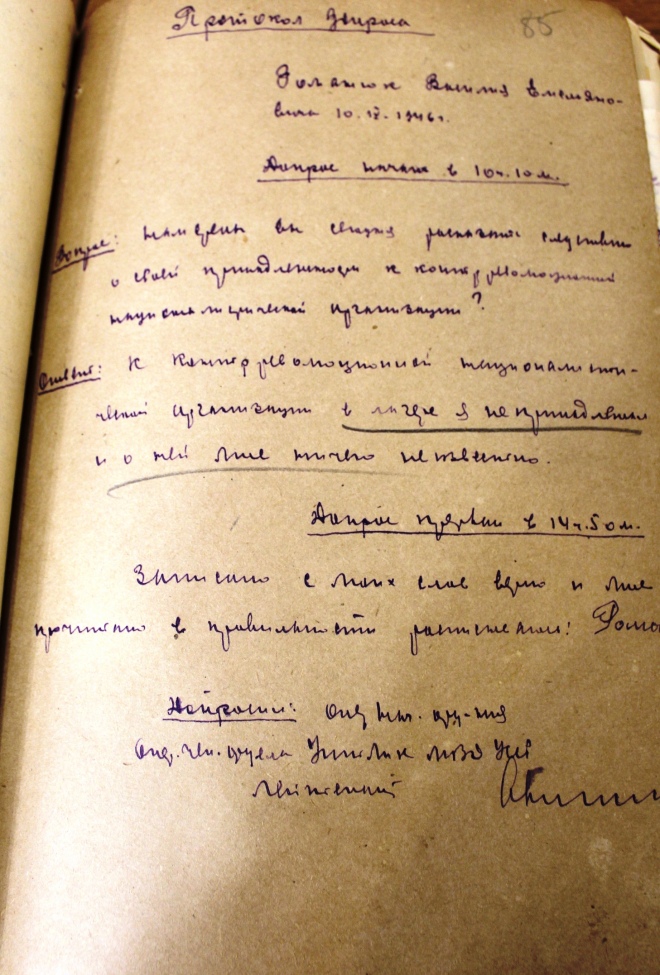 85
Протокол допроса
Романюк Василия Емельяно-
вича 10.IX.1946 г.
Допрос начат в 10 ч. 10 м.
Вопрос: Намерены вы сегодня рассказать следствию
о своей принадлежности к контрреволюционной
националистической организации?
Ответ: К контрреволюционной националисти-
ческой организации в лагере я не принадлежал
и о ней мне ничего не известно.
Допрос прерван в 14 ч. 50 м.
Записано с моих слов верно и мне
прочитано в правильности расписываюсь: Рома
Допросил: Опер. нач. отд-ния
Опер. чек. отдела МВД